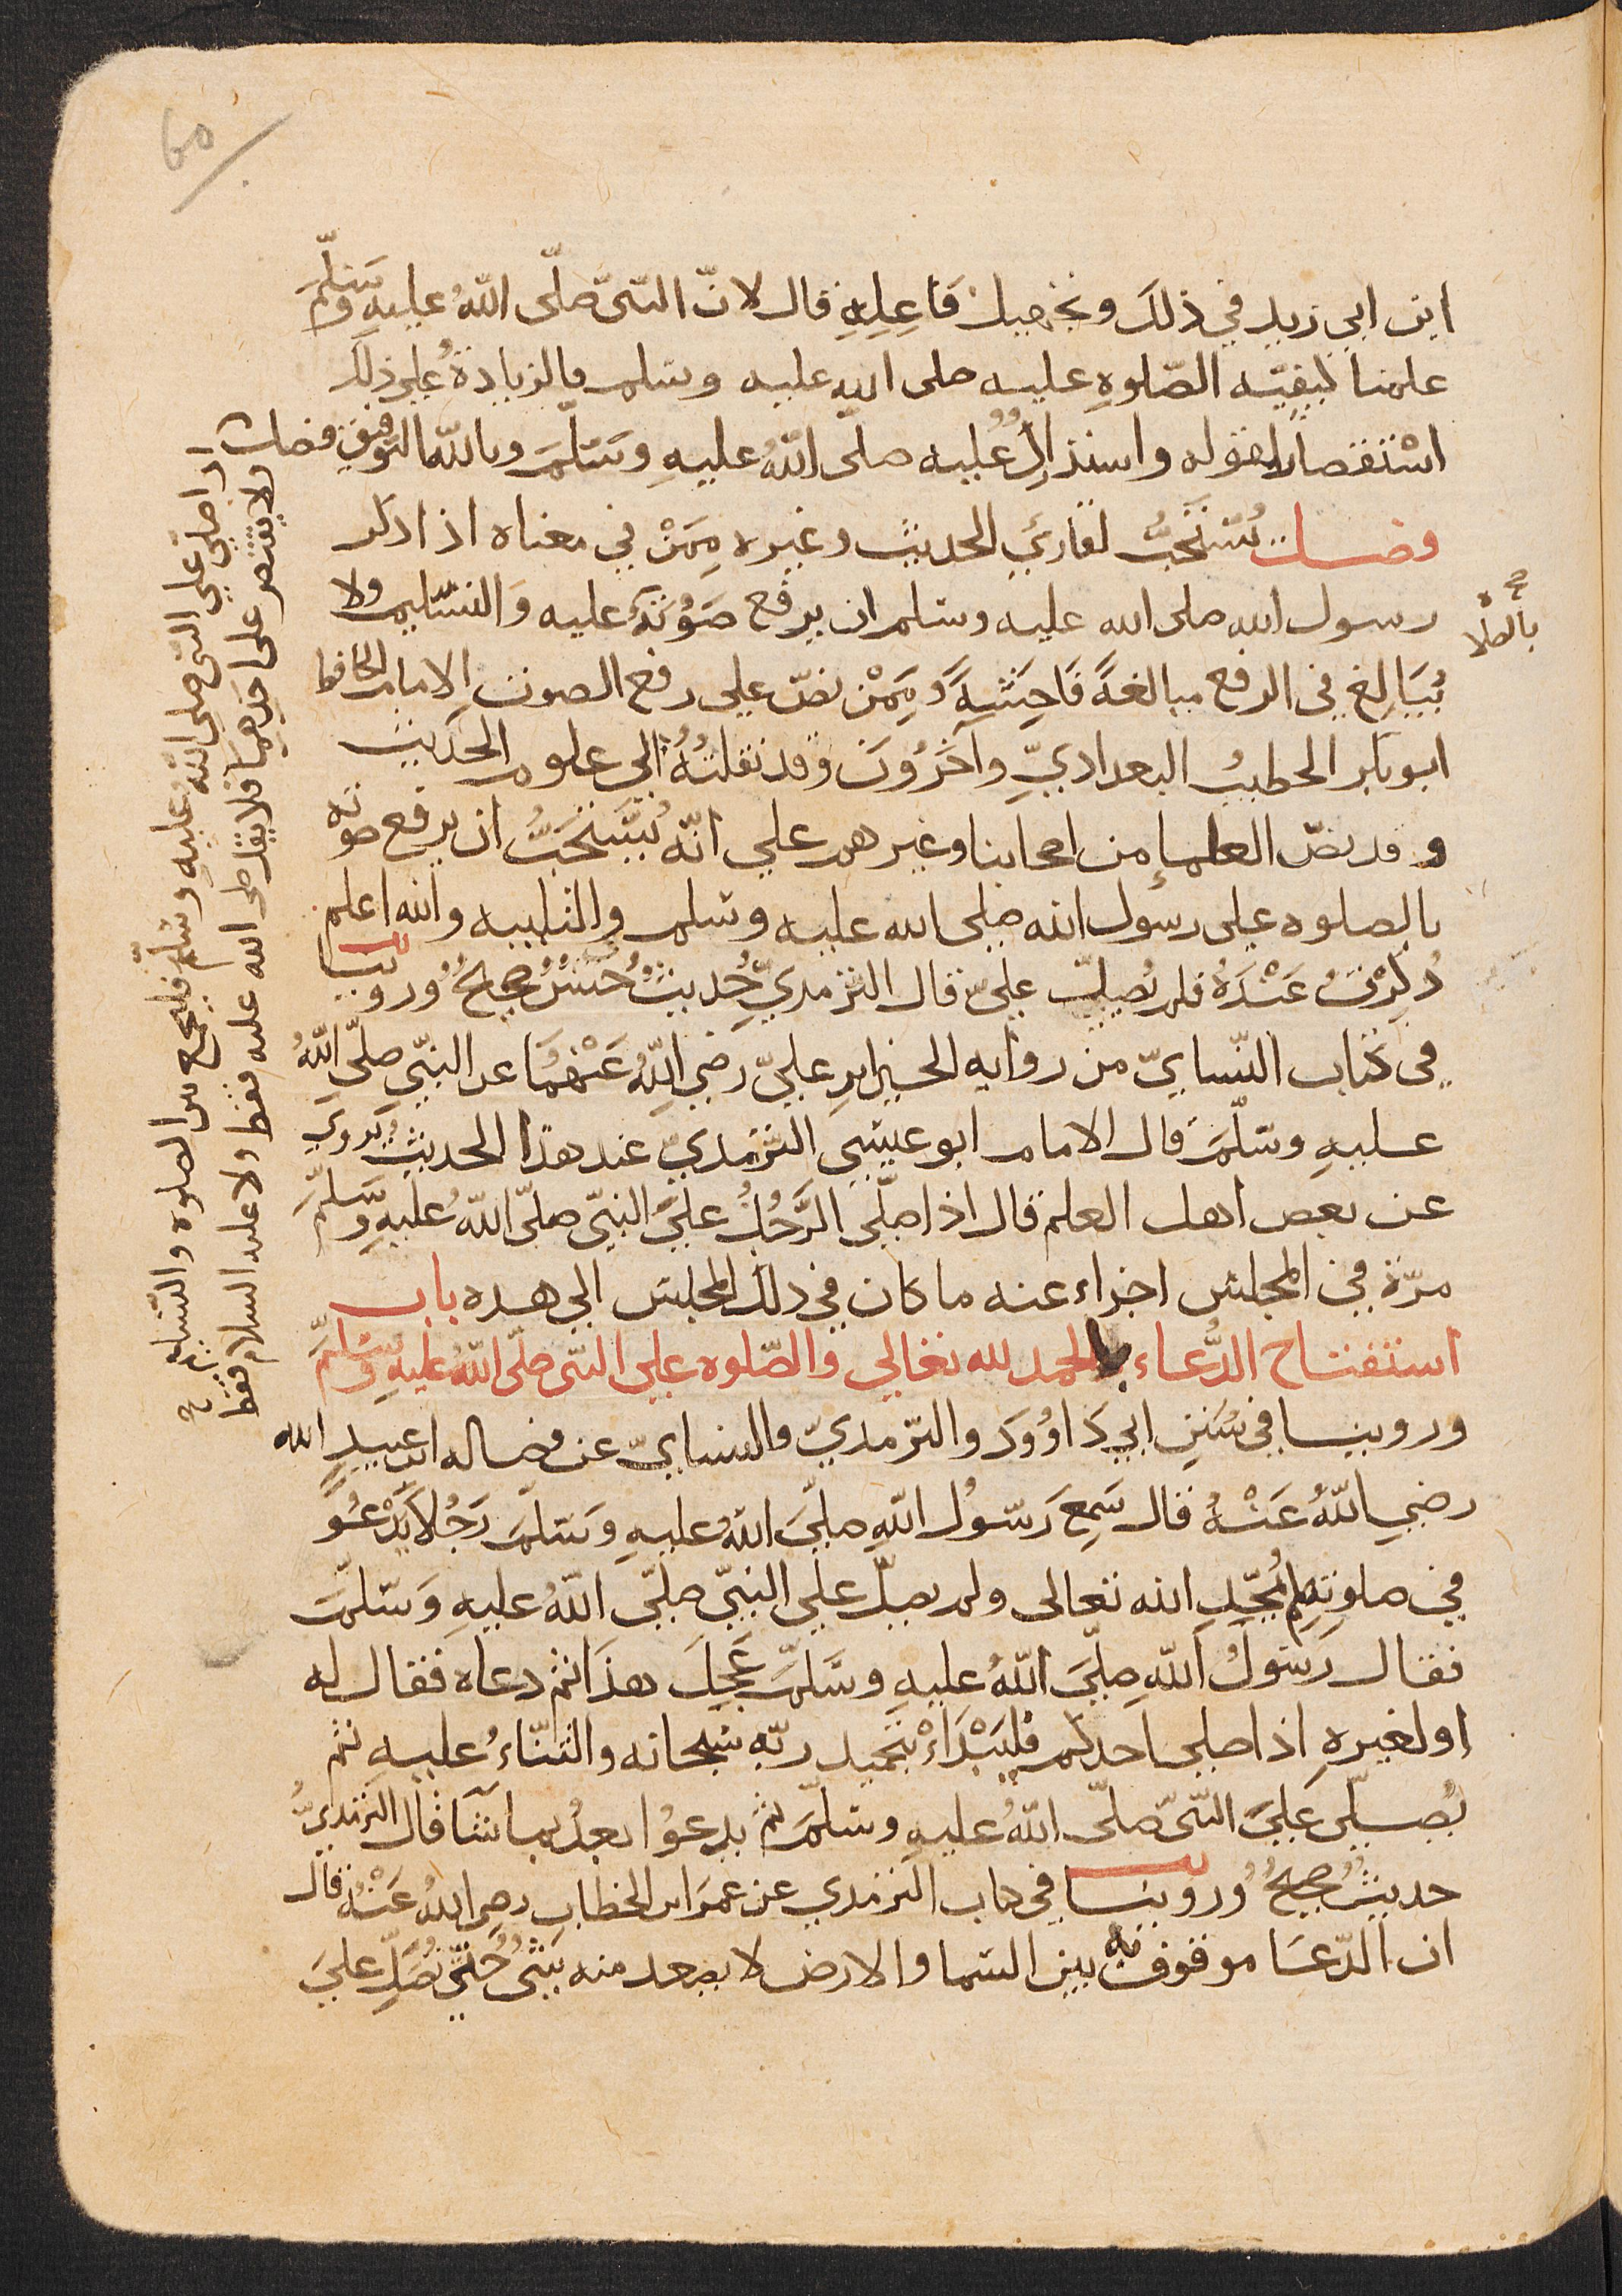 ابن ابي زيد في ذلك وتجهيل فَاعِلِهِ قال لانّ النّبيّ صلّى اللّهُ عليهِ وسَلّمَ
علمنا كيفيّه الصّلوهِ عليه صلى الله عليه وسلم فالزيادةُ على ذلك
اسْتقصارٌ لقوله واستدراكٌ عليه صلّى اللّهُ عليهِ وسَلّمَ وبالله التوفيق فصل
فصل يُسْتَحَبُّ لقارئ الحديث وغيره مِمَّنْ في معناه اذا ذكر
رسول الله صلى الله عليه وسلم ان يرفع صَوْتَهُ عليه وَالتسليم ولا
بالصلاة صح
يُبَالِغ في الرفع مبالغةً فَاحِشَةً وَمِمَّنْ نصّ على رفع الصوت الامام الحافظ
ابو بكر الخطيبُ البغداديّ وآخَرُونَ وقد نقلتُهُ الى علوم الحديث
وقد نصّ العلماء من اصحابنا وغيرهم على انّه يُسْتَحَبُّ ان يرفع صوته
بالصلوه على رسول الله صلى الله عليه وسلم والتلبيه والله اعلم
ذُكِرْتُ عَنْدَهُ فلم يُصَلِّ عليّ قال الترمذيّ حديثٌ حَسَنٌ صحيحٌ وروينا
في كتاب النّسايّ من روايه الحسين ابن عليّ رضي اللّهُ عَنْهُمَا عن النّبيّ صلّى اللّهُ
عليهِ وسّلّمَ قال الامام ابو عيسى التّرمذيّ عند هذا الحديث يُروي
عن بعض اهل العلم قال اذا صلّى الرَّجُلُ عليَ النّبيّ صلّى اللّهُ عليهِ وسَلّمَ
مرّة في المجلس اجزاء عنه ما كان في ذلك المجلس الى هده باب
استفتاح الدُّعاء بالحمد لله تعالى والصّلوه على النّبيّ صلّى اللّهُ عليهِ وسَلّمَ
وروينا في سُنَنِ ابي دَاوُودَ والتّرمذيّ والنسايّ عن فضاله ابن عبيد الله
رضي اللّهُ عَنْهُ قال سَمِعَ رَسُولُ اللّهِ صلّىَ اللّهُ عليهِ وسَلّمَ رَجُلًا يَدْعُو
في صلوتهِ لم يُمَجِّدِ الله تعالى ولم يصلّ على النّبيّ صلّى اللّهُ عليهِ وَسّلّمَ
فقال رَسُولُ اللّهِ صلّىَ اللّهُ عليهِ وسَّلّمَ عَجِلَ هذَا ثم دعاه فقال له
او لغيرهِ اذا صلى احدكم فليَبْدَاءْ بتحميد ربّهِ سبحانه والثّنَّاءُ عليهِ ثم
يُصلّي عَليَ النّبيّ صلّى اللّهُ عليهِ وسَلّمَ ثم يدعُوا بعدُ بما شَآ قال الترمذيُّ
حديثٌ صحيحٌ وروينا في كتاب الترمذي عن عمرَ ابن الخطاب رضي اللهُ عَنْهُ قال
ان الدّعَا موقوف بين السّما والارض لا يصعد منه شَيْءٌ حَتّى تُصَلِّ عليَ
اذا صلّى على النّبيّ صلّى اللّهُ عليهِ وسَلّمَ فليجمع بين الصلوه والتّسليم
ولا يقتصر على احدهما فلا يقل صلى الله عليه فقط ولا عليه السلام فقط صح